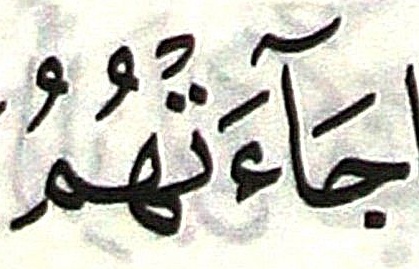 ا جَآءَتْهُمُ